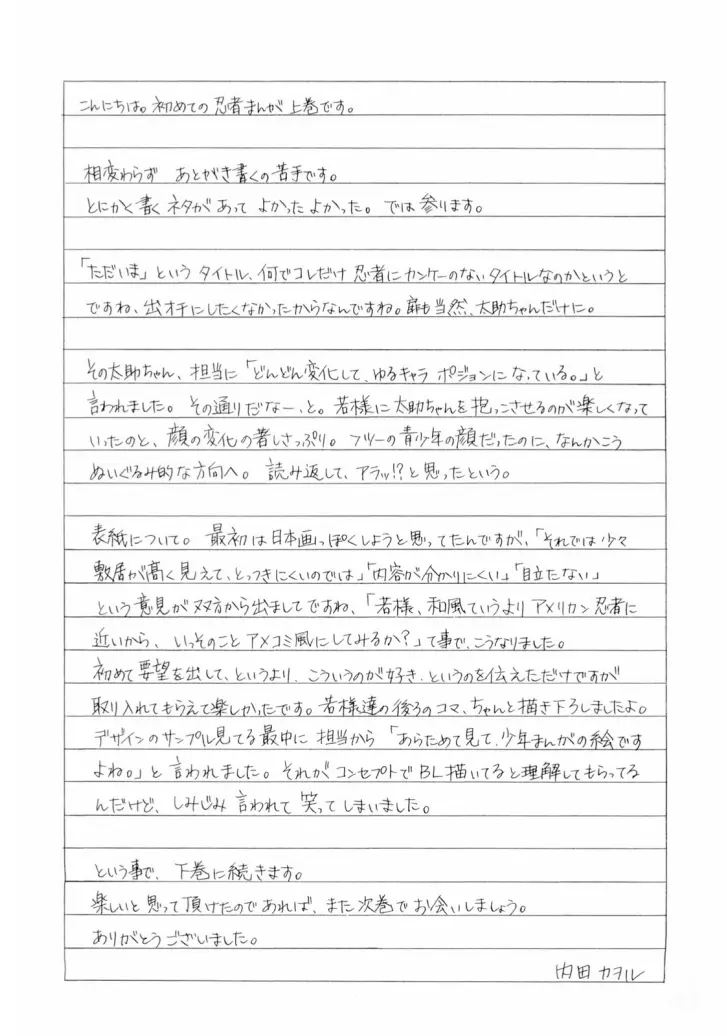 こんにちは。初めての忍者まんが上巻です。
相変わらず あとがき書くの苦手です。
とにかく書くネタがあって よかったよかった。では参ります。
「ただいま」という タイトル、何でコレだけ 忍者にカンケーのないタイトルなのかというと
ですね、出オチにしたくなかったからなんですね。扉も当然、太助ちゃんだけに。
その太助ちゃん、担当に「どんどん変化して、ゆるキャラ ポジションになっている。」と
言われました。その通りだなー、と。若様に太助ちゃんを抱っこさせるのが楽しくなって
いったのと、顔の変化の著しさっぷり。フツーの青少年の顔だったのに、なんかこう
ぬいぐるみ的な方向へ。 読み返して、アラッ!?と思ったという。
表紙について。 最初は日本画っぽくしようと思ってたんですが、「それでは少々
敷居が高く見えて、とっつきにくいのでは」「内容が分かりにくい」「目立たない」
という意見が双方から出ましてですね、「若様、和風ていうよりアメリカン忍者に
近いから、いっそのこと アメコミ風にしてみるか?」て事で、こうなりました。
初めて要望を出して、というより、こういうのが好き、というのを伝えただけですが
取り入れてもらえて楽しかったです。若様達の後ろのコマ、ちゃんと描き下ろしましたよ。
デザインのサンプル見てる最中に 担当から 「あらためて見て、少年まんがの絵です
よね。」と 言われました。それがコンセプトでBL描いてると理解してもらってる
んだけど、しみじみ言われて 笑って しまいました。
という事で、下巻に続きます。
楽しいと思って頂けたのであれば、また次巻でお会いしましょう。
ありがとうございました。
内田カヲル